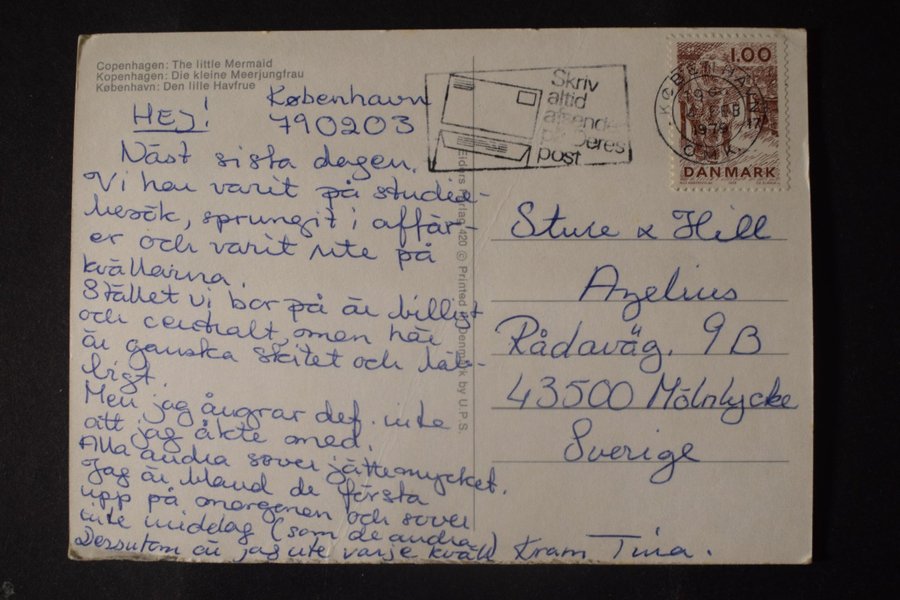 Copenhagen: The little Mermaid
Kopenhagen: Die kleine Meerjungfrau
København: Den lille Havfrue
HEJ!
København
790203
Näst sista dagen.
Vi har varit på studie-
besök, sprungit i affär-
er och varit ute på
kvällarna.
Stället vi bor på är billigt
och centralt, men här
är ganska skitet och
Men jag ångrar def. inte
att jag åkte med.
Alla andra sover jättemycket.
Jag är bland de första
upp på morgonen och sover
inte middag (som de andra)
Dessutom är jag ute varje kväll
Kram Tina.
Skriv
altid
afsender
på Deres
post
1.00
DANMARK
KØBENHAVN
1979
OMK.
Printed in Denmark by U.P.S.
Sture & Hill
Azelius
Rådaväg. 9B
43500 Mölnlycke
Sverige